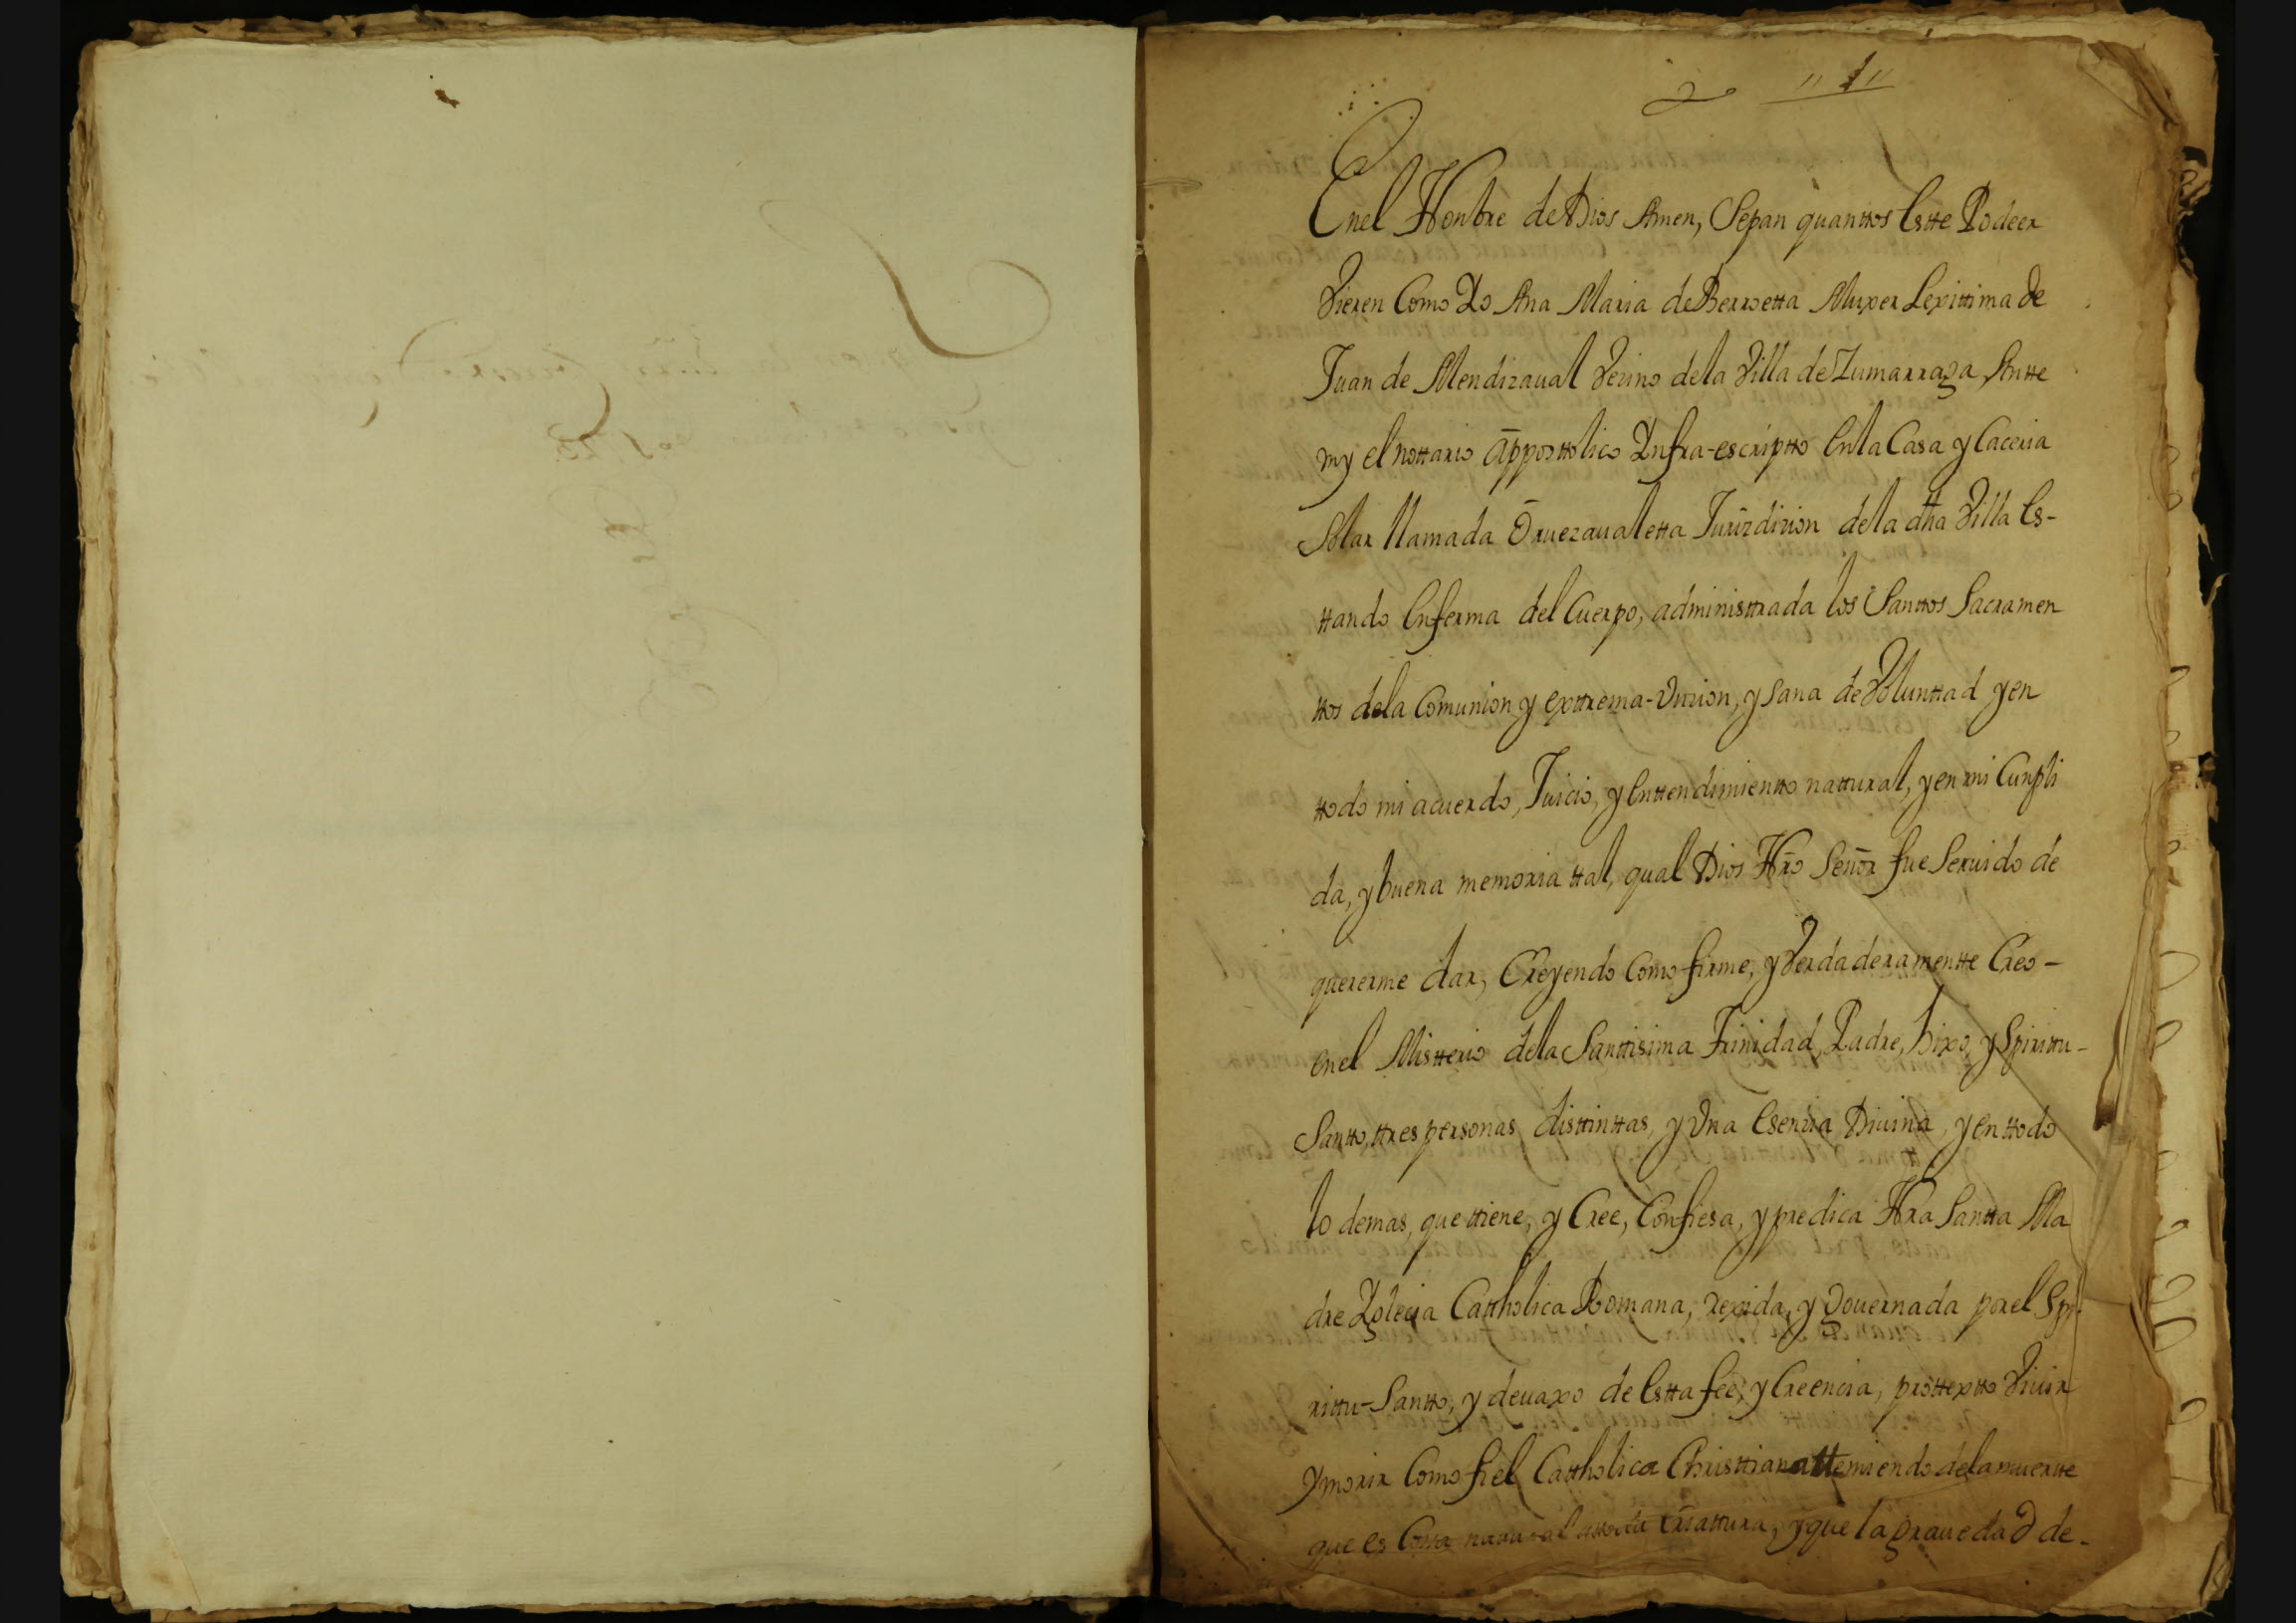 "1"
En el Nonbre de Dios Amen, Sepan quanttos Estte Podeer
Vieren Como Yo Ana Maria de Berroetta Muxer Lexittima de
Juan de Mendizaual Vezino de la Villa de Zumarraga, Antte
my el nottario Apposttolico Infra-escriptto En la Casa y Caceria
Solar llamada Oruezaualetta Jurizdizion de la dha Villa Es-
ttando Enferma del Cuerpo, administtrada los Santtos Sacramen
ttos de la Comunion y exttrema-Vnzion, y sana de Volunttad y en
ttodo mi acuerdo, Juicio, y Enttendimientto nattural, y en mi Cunpli
da, y buena memoria ttal, qual Dios Nro Señor fue Seruido de
quererme dar, Creyendo Como firme, y Verdaderamentte Creo -
en el Mistterio de la Santtisima Trinidad, Padre, hixo, y Spirittu-
Santto, ttres personas disttinttas, y Vna Esenzia Diuina, y en ttodo
lo demas, que ttiene, y Cree, Confiesa, y predica Nra Santta Ma
dre Yglecia Cattholica Romana, rexida, y Gouernada por el Spi-
rittu-Santto, y deuaxo de Estta fee, y Creencia, prottextto Viuir
y morir Como fiel Cattholica Christtiana ttemiendo de la muertte
que es Cossa natural a ttoda criattura, y que la grauedad de-